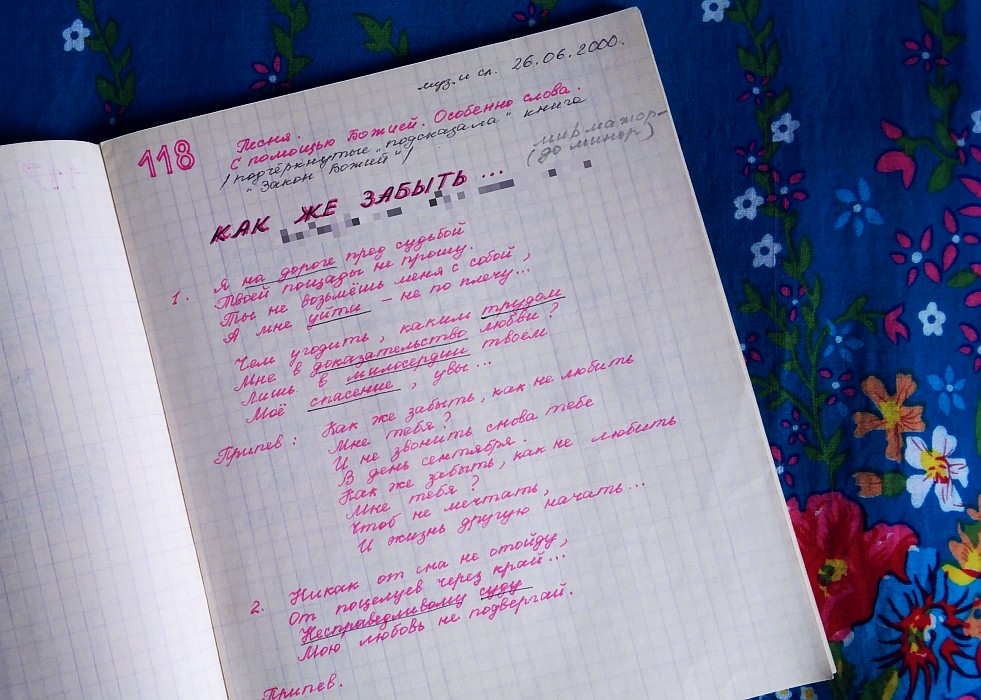 муз. и сл. 26.06.2000.
118
Песня.
С помощью Божией. Особенно слова.
/ подчёркнутые "подсказала" книга
"Закон Божий" /
мажор-
(до минор)
КАК ЖЕ ЗАБЫТЬ...
1. Я на дороге пред судьбой
Твоей пощады не прошу.
Ты не возьмёшь меня с собой,
А мне уйти – не по плечу...
Чем угодить, каким трудом
Мне в доказательство любви?
Лишь в милосердии твоём
Моё спасение, увы...
Припев: Как же забыть, как не любить
Мне тебя?
И не звонить снова тебе
В день сентября.
Как же забыть, как не любить
Мне тебя?
Чтоб не мечтать,
И жизнь другую начать...
2. Никак от сна не отойду,
От поцелуев через край...
Несправедливому суду
Мою любовь не подвергай.
Припев.